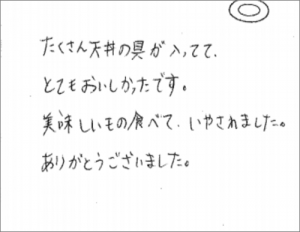 たくさん天丼の具が入ってて、
とてもおいしかったです。
美味しいもの食べて、いやされました。
ありがとうございました。